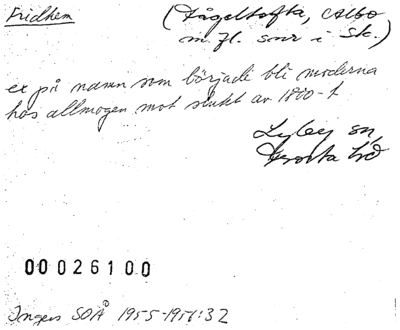 Fridhem
(Fågeltofta, Albo
m. fl. snr i Sk.)
ex på namn som började bli moderna
hos allmogen mot slutet av 1800-t.
Lyby sn,
Frosta hd
00026100
Ingers SOÅ 1955-1956:32